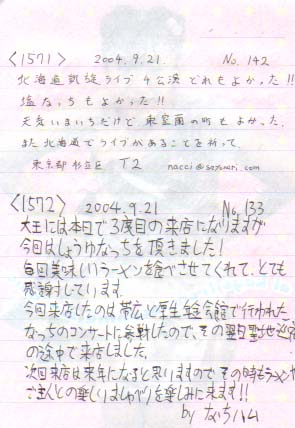 <1571> 2004.9.21. No.142
北海道凱旋ライブ 4公演 どれもよかった!!
塩なっちもよかった!!
天気いまいちだけど 東室蘭の町もよかった。
また北海道でライブがあることを祈って
東京都 杉並区 T2
<1572> 2004.9.21 No.133
大王には本日で3度目の来店になりますが
今回はしょうゆなっちを頂きました!
毎回美味しいラーメンを食べさせてくれて、とても
感謝しています。
今回来店したのは帯広と厚生年金会館で行われた
なっちのコンサートに参戦したので、その翌日聖地巡
の途中で来店しました。
次回来店は来年になると思いますので その時もラーメンや
ご主人との楽しいおしゃべりを楽しみに来ます!!
by なちハム